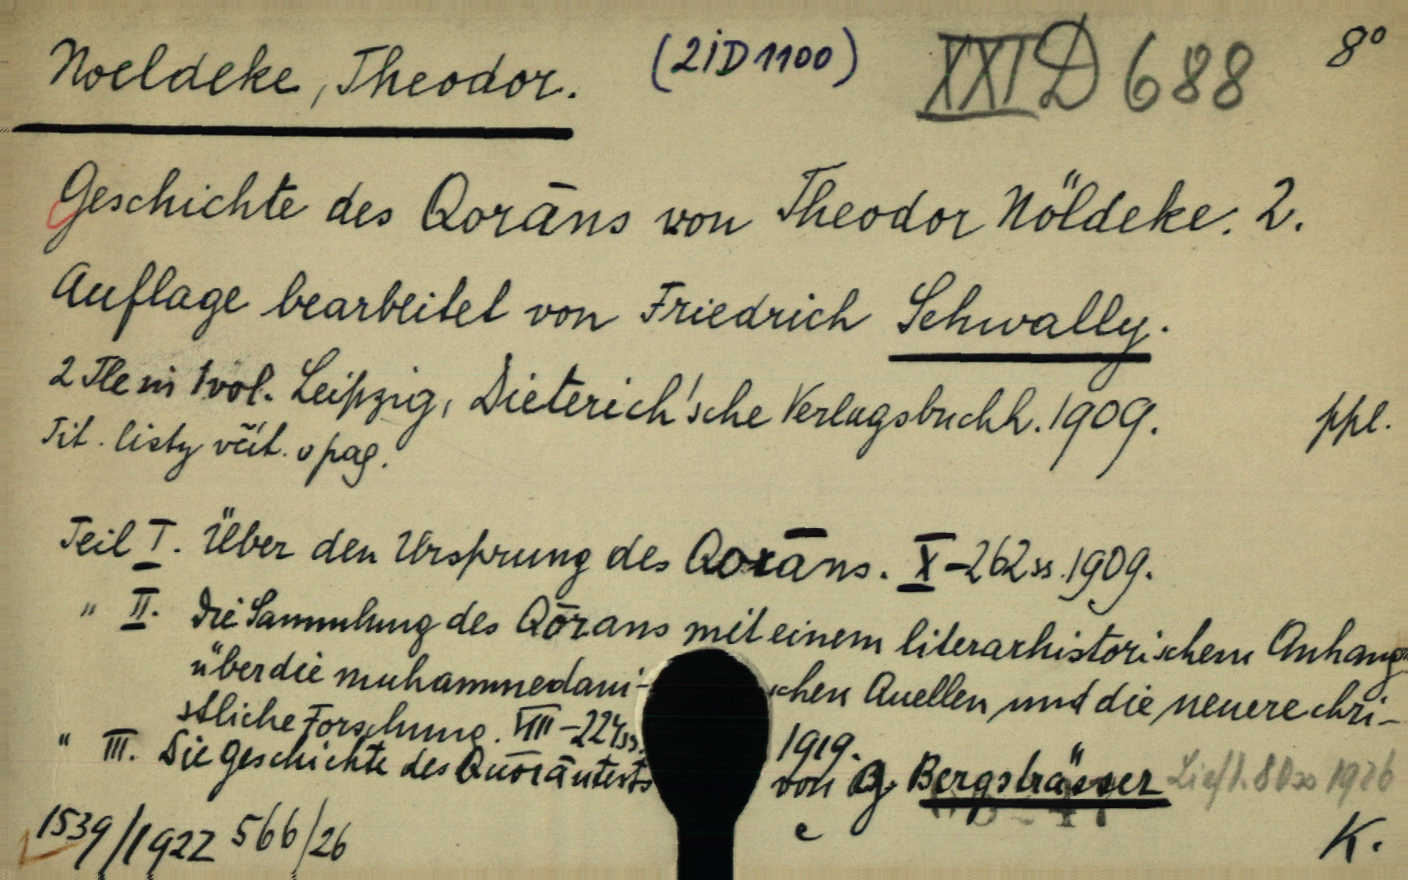 Noeldeke, Theodor. (2iD1100) XXI D 688 8°
Geschichte des Qorāns von Theodor Nöldeke. 2.
Auflage bearbeitet von Friedrich Schwally.
2 Tle in 1 vol. Leipzig, Dieterich'sche Verlagsbuchh. 1909. ppl.
Tit. listy včít. o pag.
Teil I. Über den Ursprung des Qorāns. X-262 ss. 1909.
" II. Die Sammlung des Qōrans mit einem literarhistorischem Anhang
über die muhammedani- schen Quellen und die neuere chri-
stliche Forschung. VIII-224 ss. 1919.
" III. Die Geschichte des Quorāntexts von G. Bergsträsser Lief 1. 80 ss 1926
1539/1922 566/26 K.